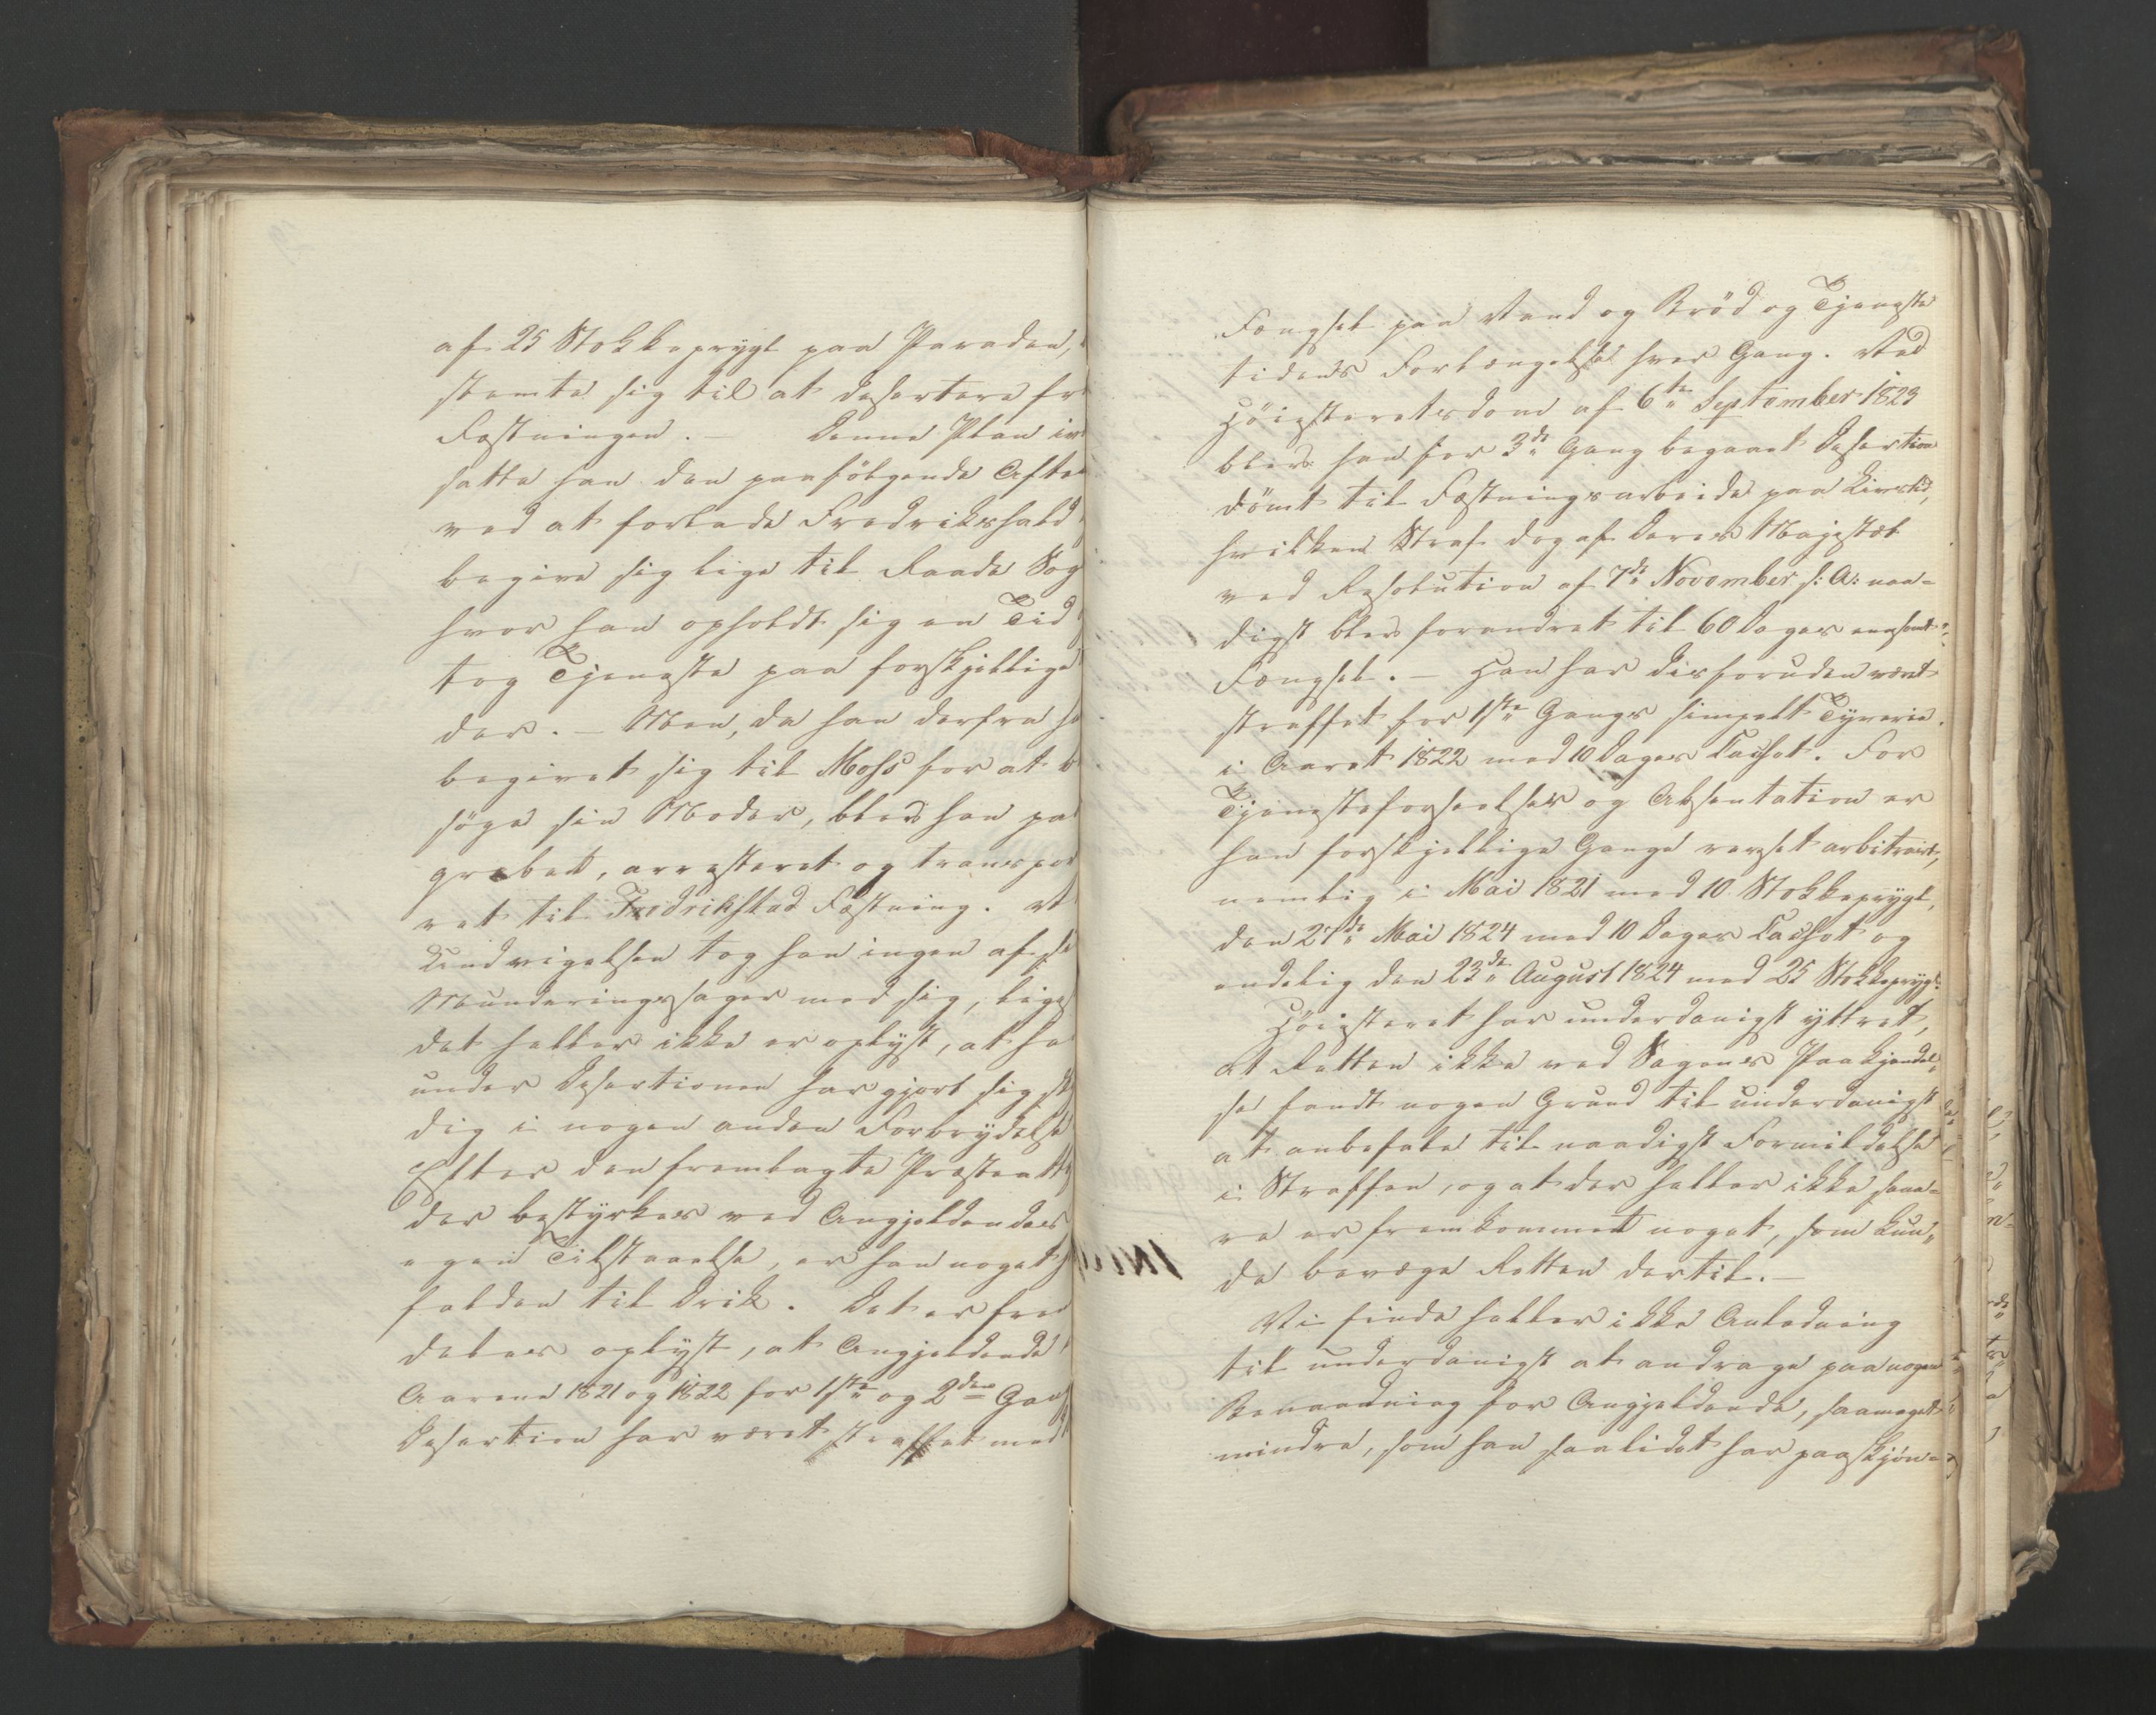 af 25 Stokkeprygl paa Paraden,
stemte sig til at desertere fr
Fæstningen. – Denne Plan iv
satte han den paafölgende Afte
ved at forlade Fredrikshald
begive sig lige til Raade Sog
hvor han opholdt sig en Tid
tog Tjeneste paa forskjellige
der. – Men, da han derfra ha
begivet sig til Moss for at b
söge sin Moder, blev han paa
grebet, arresteret og transpor
ret til Fredrikstad Fæstning. V
Undvigelsen tog han ingen af si
Munderingssager med sig, liges
det heller ikke er oplyst, at ha
under Desertionen har gjort sig sk
dig i nogen anden Forbrydelse
Efter den fremlagte Præsteatt
der bestyrkes ved Angjeldendes
egen Tilstaaelse, er han noget h
falden til Drik. Det er frem
deles oplyst, at Angjeldende
Aarene 1821 og 1822 for 1ste og 2den Gang
Desertion har været straffet med
Fængsel paa Vand og Bröd og Tjeneste
tidens Forlængelse hver Gang. Ved
Höiesteretsdom af 6te September 1823
blev han for 3de Gang begaaet Desertion
dömt til Fæstningsarbeide paa Livstid,
hvilken Straf dog af Deres Majestæt
ved Resolution af 7de November s: A: naa-
digst blev forandret til 60 Dages eensomt
Fængsel. – Han har desforuden været
straffet for 1ste Gangs simpelt Tyverie
i Aaret 1822 med 10 Dages Cachot. For
Tjenesteforseelser og Absentation er
han forskjellige Gange revset arbitrairt,
nemlig i Mai 1821 med 10 Stokkeprygl,
den 27de Mai 1824 med 10 Dages Cachot og
endelig den 23de August 1824 med 25 Stokkeprygl.
Höiesteret har underdanigst yttret,
at Retten ikke ved Sagens Paakjendel-
se fandt nogen Grund til underdanigst
at anbefale til naadigst Formildelse
i Straffen, og at der heller ikke sene-
re er fremkommet noget, som kun-
de bevæge Retten dertil. –
Vi finde heller ikke Anledning
til underdanigst at andrage paa nogen
Benaadning for Angjeldende, saameget
mindre, som han saalidet har paaskjön-